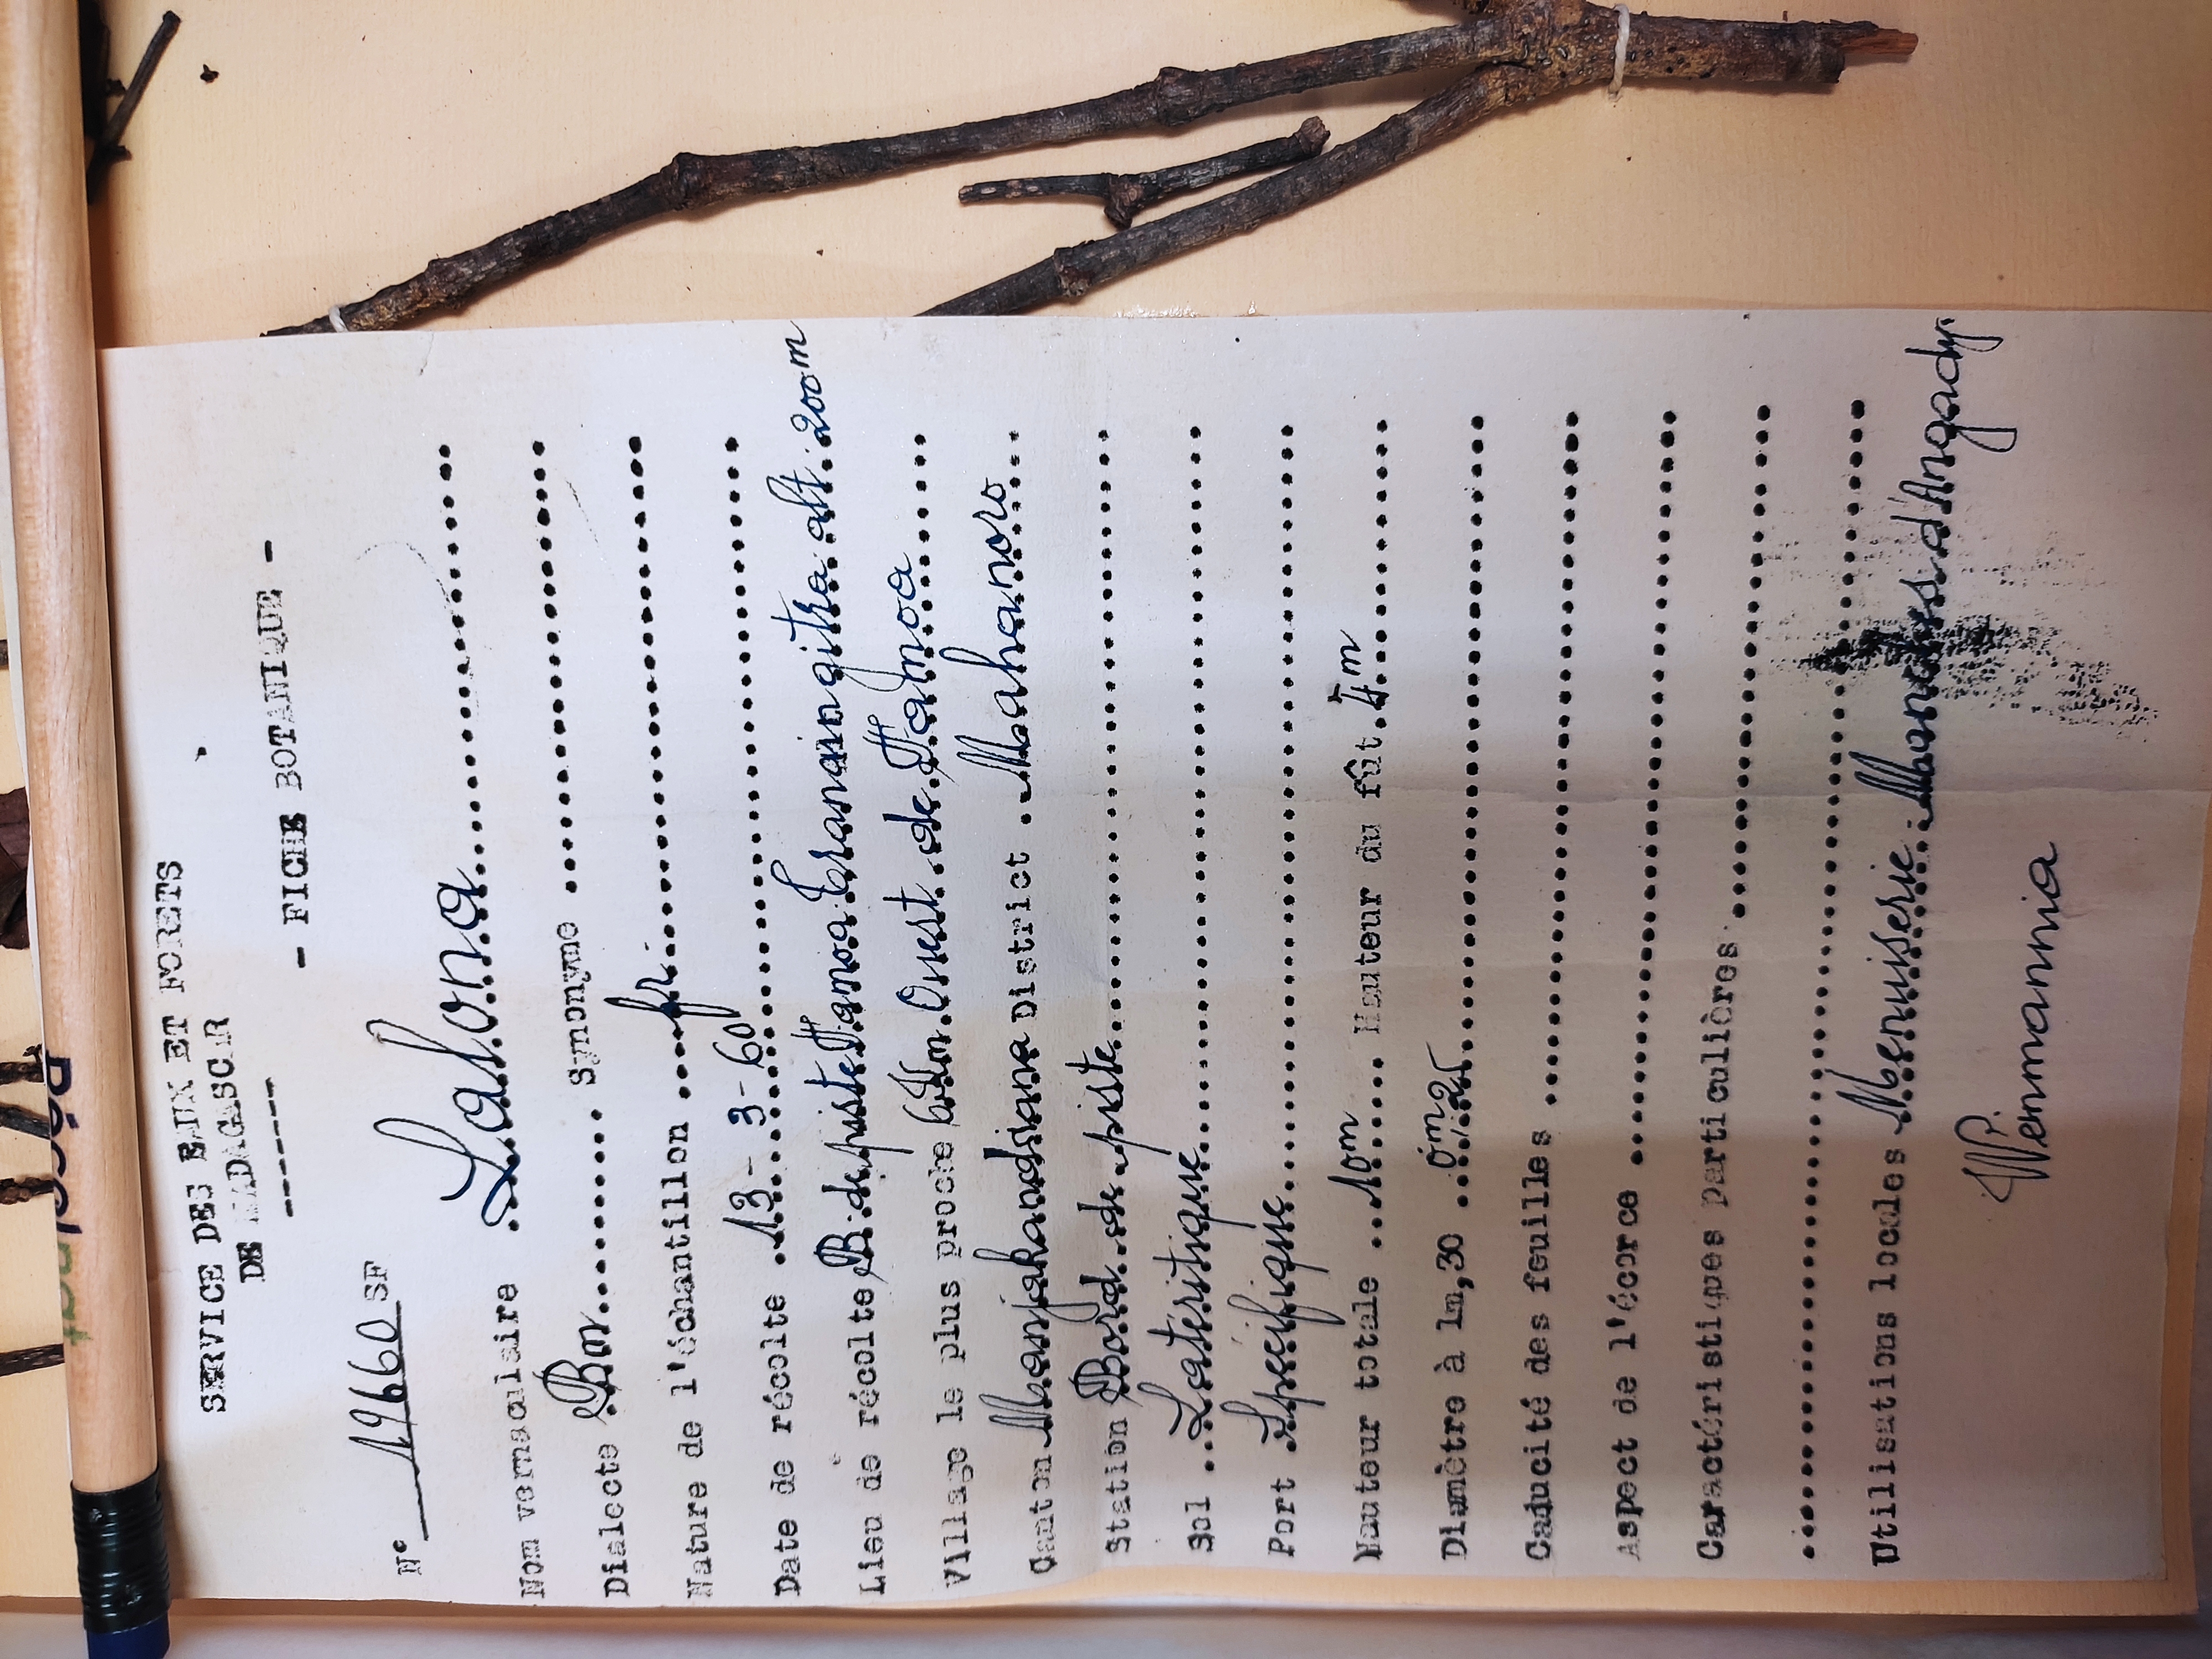 SERVICE DES EAUX ET FORETS
DE MADAGASCAR
- FICHE BOTANIQUE -
N° 19660 SF
Nom vernaculaire Lalona
Dialecte Bm Synonyme
Nature de l'échantillon fr
Date de récolte 13-3-60
Lieu de récolte B. de piste Tamoa Eranaingitra alt. 200m
Village le plus proche 6Km Ouest de Tamoa
Canton Manjakandriana District Mahanoro
Station Bord de piste
Sol Lateritique
Port Specifique
Hauteur totale 10m Hauteur du fût 4m
Diamètre à 1m,30 0m25
Caducité des feuilles
Aspect de l'écorce
Caractéristiques particulières
Utilisations locales Menuiserie Manches d'Angady
Wenmannia